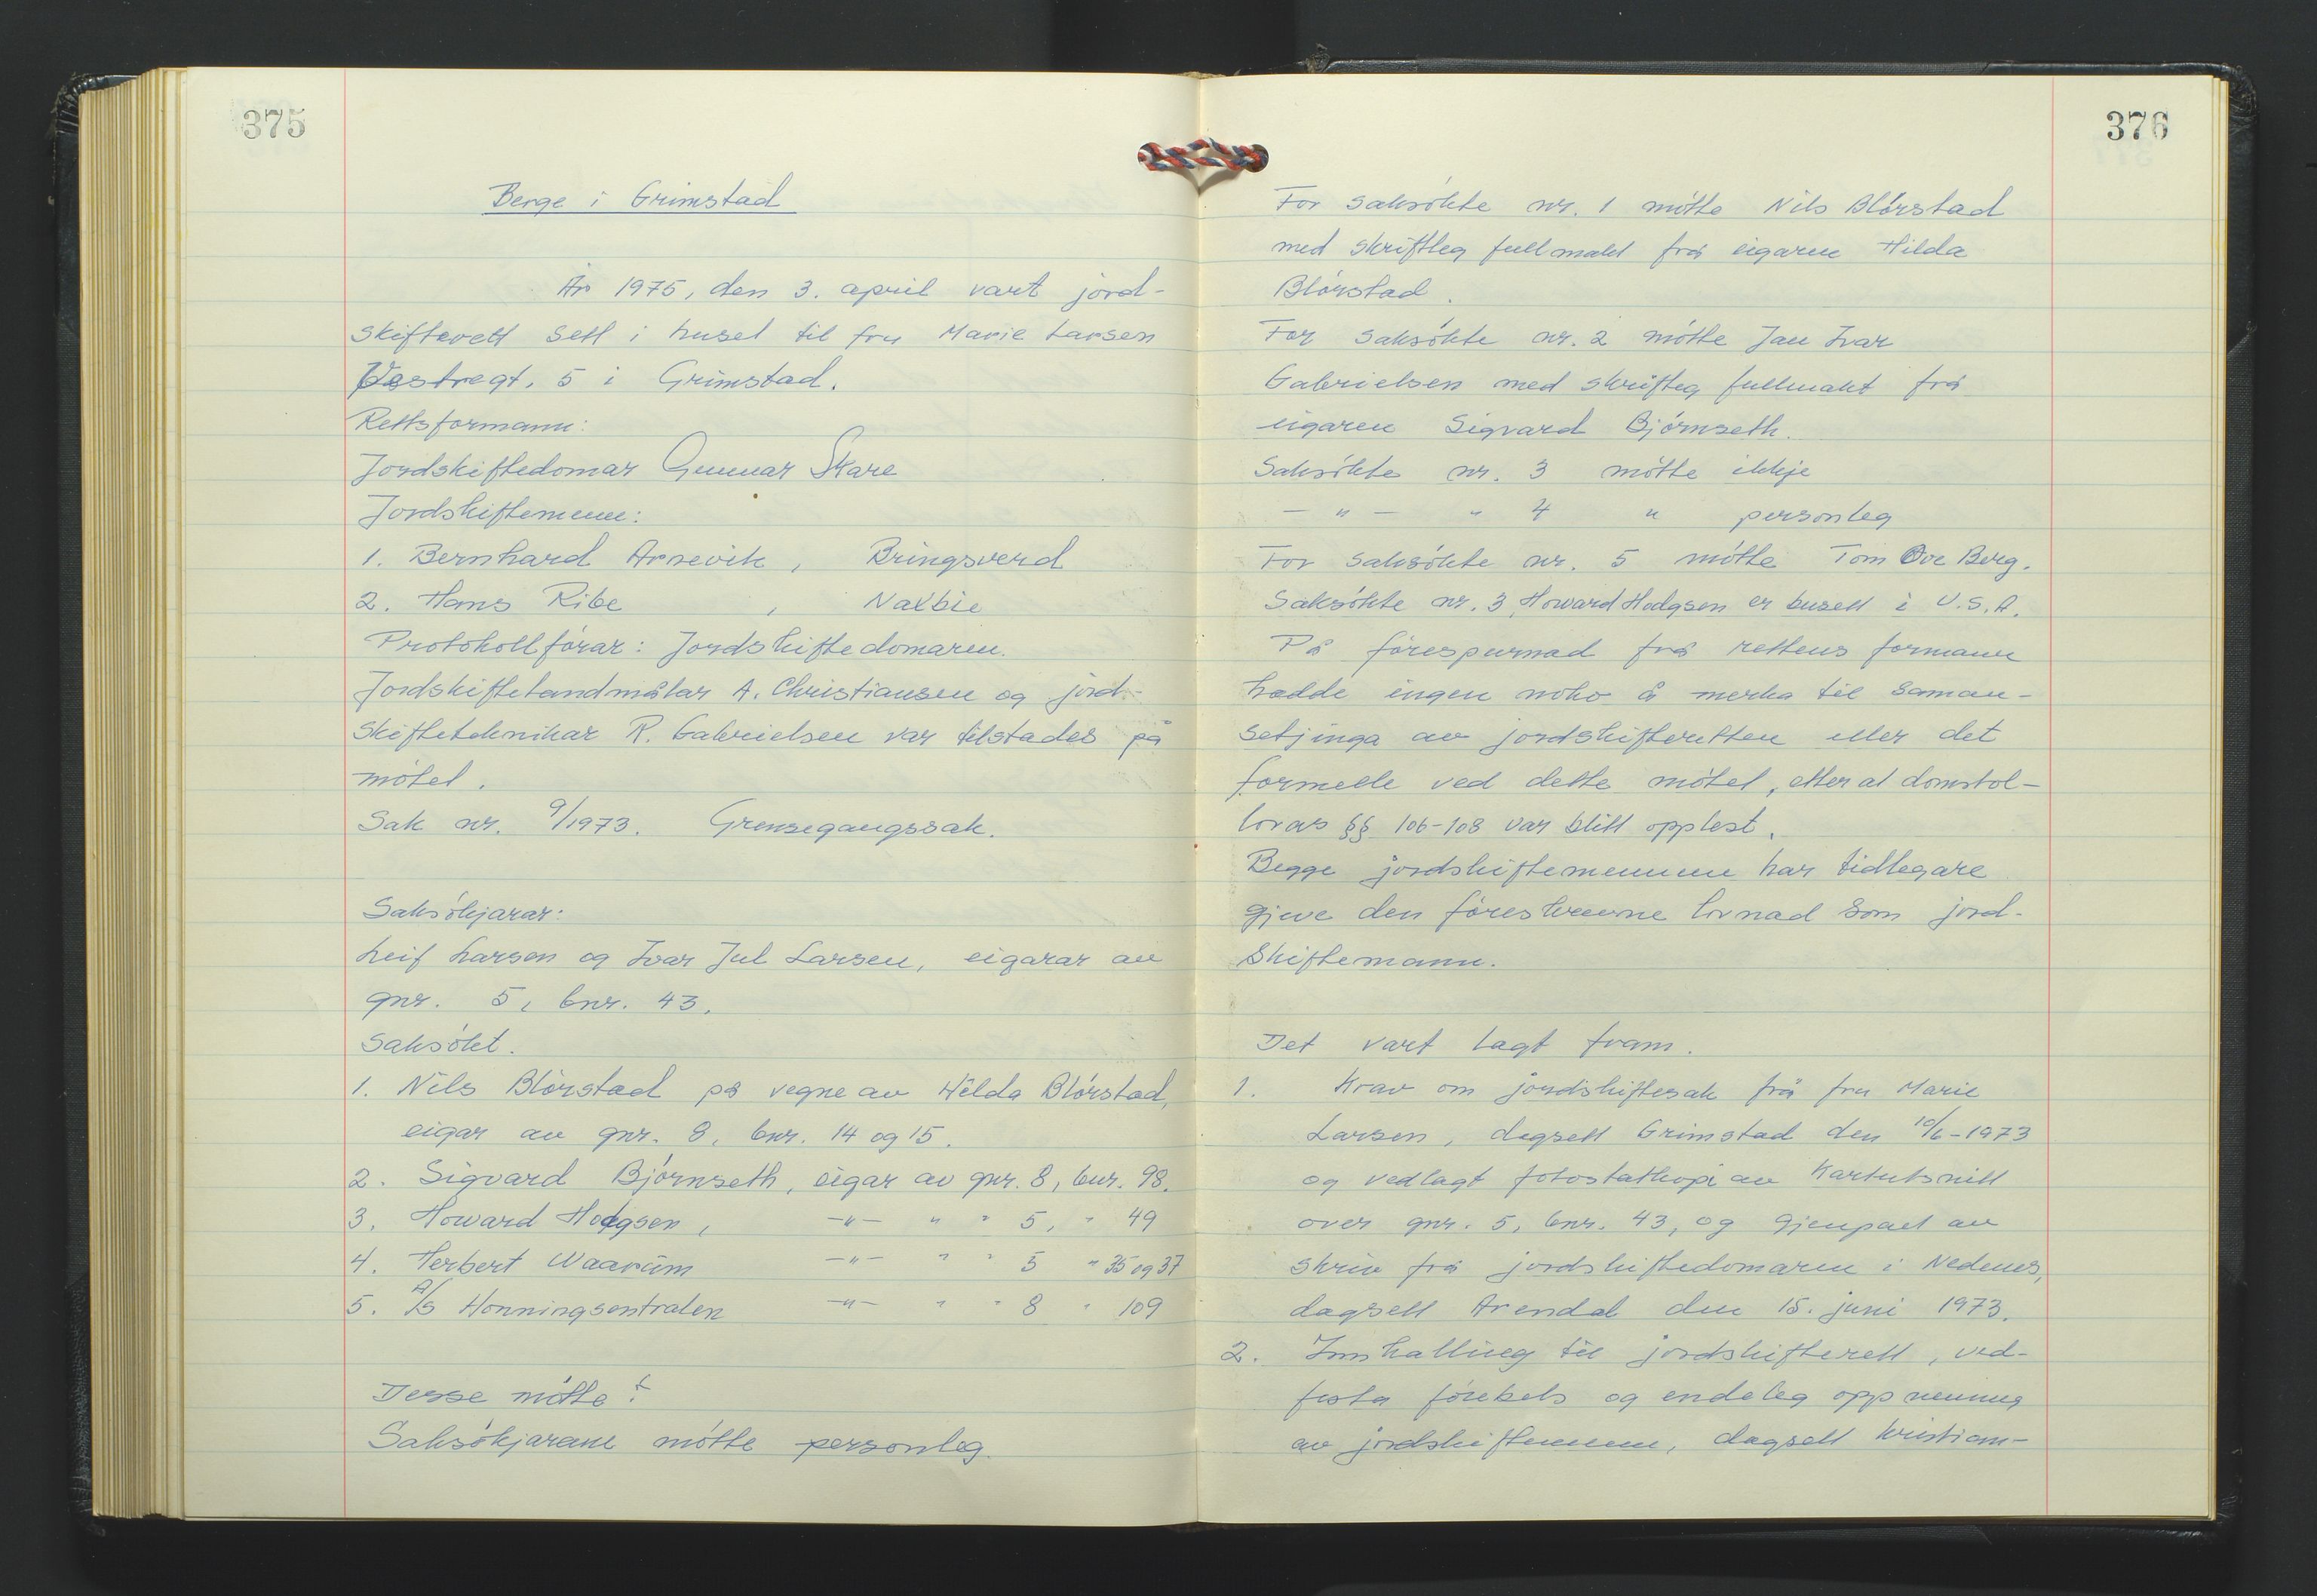 375
Berge i Grimstad
År 1975, den 3. april vart jord-
skifterett sett i huset til fru Marie Larsen
Vestregt. 5 i Grimstad.
Rettsformann:
Jordskiftedomar Gunnar Skare
Jordskiftemenn:
1. Bernhard Arnevik, Bringsverd
2. Hans Ribe, Naxbie
Protokollfórar: Jordskiftedomaren.
Jordskiftelandmålar A. Christiansen og jord-
skifteteknikar R. Gabrielsen var tilstades på
mótet.
Sak nr. 9/1973. Grensegangssak.
Saksókjarar:
Leif Larsen og Ivar Jul Larsen, eigarar av
gnr. 5, bnr. 43.
Saksókt.
1. Nils Blórstad på vegne av Hilda Blórstad,
eigar av gnr. 8, bnr. 14 og 15.
2. Sigvard Bjórnseth, eigar av gnr. 8, bnr. 98.
3. Howard Hodgsen, -"- " " 5, " 49
4. Herbert Waarüm -"- " " 5 " 35 og 37
5. A/S Honningsentralen -"- " " 8 " 109
Desse mótte:
Saksókjarane mótte personleg.
376
For saksókte nr. 1 mótte Nils Blórstad
med skriftleg fullmakt frå eigaren Hilda
Blórstad.
For saksókte nr. 2 mótte Jan Ivar
Gabrielsen med skrifteg fullmakt frå
eigaren Sigvard Bjórnseth.
Saksókte nr. 3 mótte ikkje
- " - " 4 " personleg
For saksókte nr. 5 mótte Tom Ove Berg.
Saksókte nr. 3, Howard Hodgsen er busett i U.S.A.
På fórespurnad frå rettens formann
hadde ingen noko å merka til saman-
setjinga av jordskifteretten eller det
formelle ved dette mótet, etter at domstol-
lovas §§ 106-108 var blitt opplest.
Begge jordskiftemennene har tidlegare
gjeve den fóreskrevne lovnad som jord-
skiftemann.
Det vart lagt fram.
1. Krav om jordskiftesak frå fru Marie
Larsen, dagsett Grimstad den 10/6-1973
og vedlagt fotostatkopi av kartutsnitt
over gnr. 5, bnr. 43, og gjenpart av
skriv frå jordskiftedomaren i Nedenes,
dagsett Arendal den 15. juni 1973.
2. Innkalling til jordskifterett, ved-
festa fórebels og endeleg oppnemning
av jordskiftemenn, dagsett kristian-